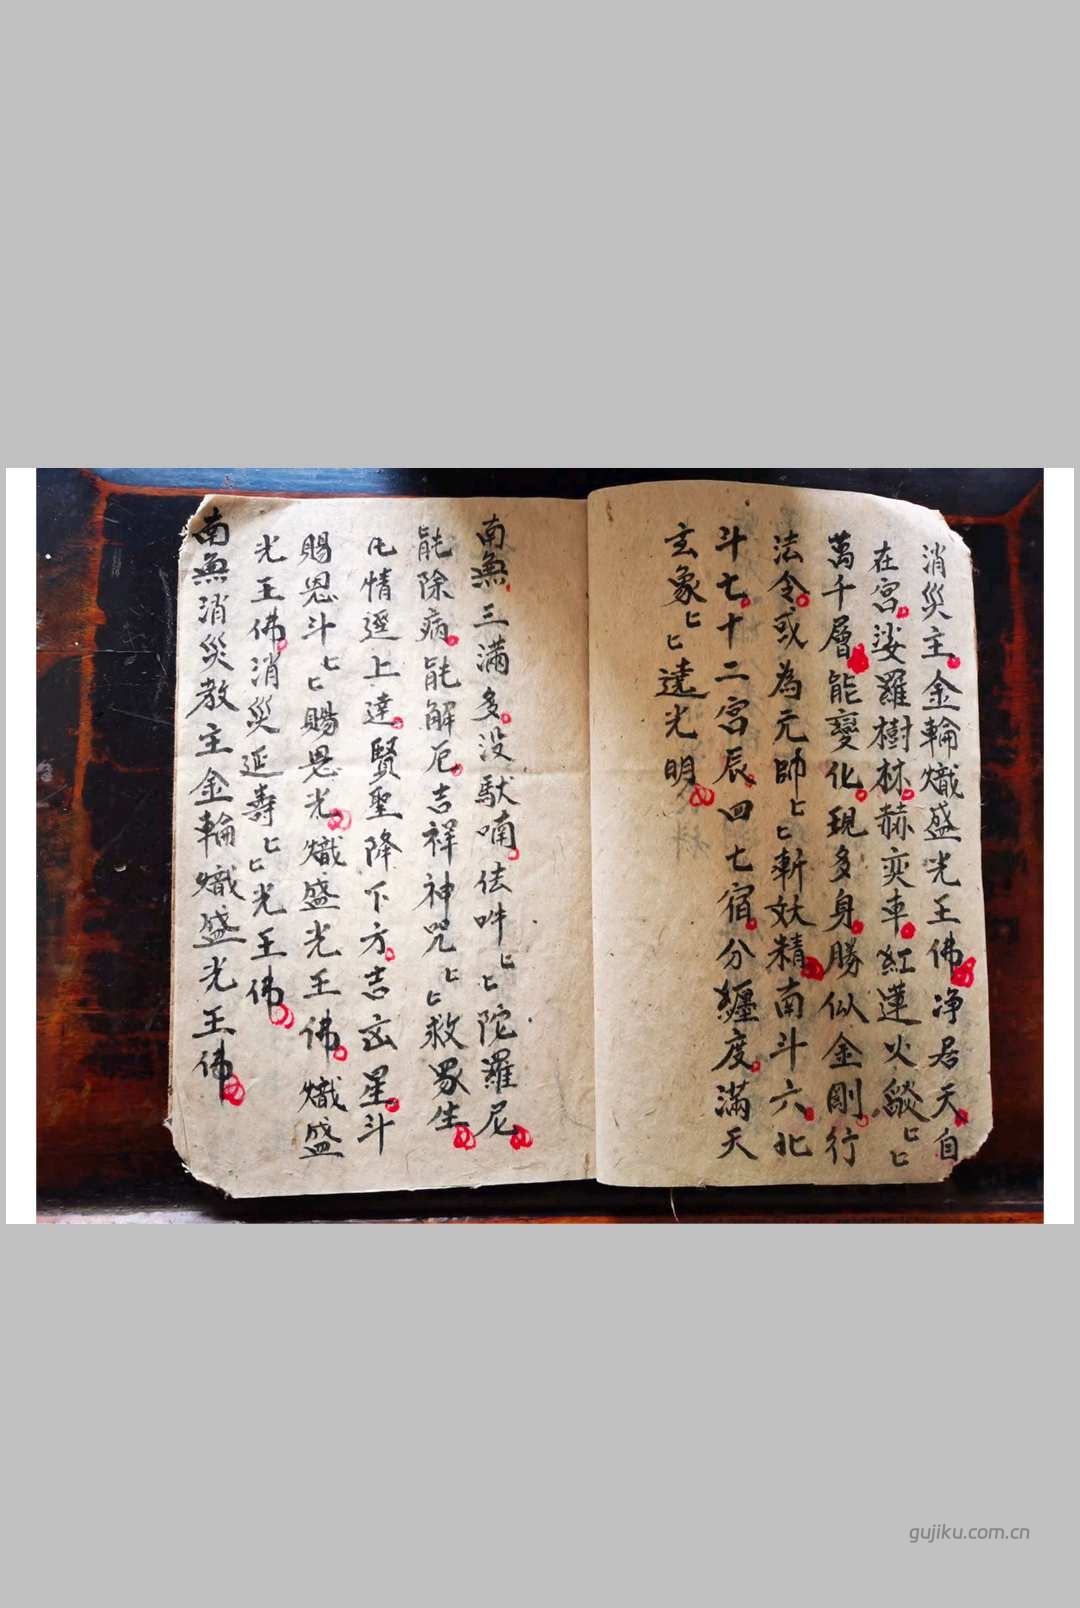 消災主金輪熾盛光王佛净居天自
在宮娑羅樹林赫奕車紅蓮火燄匕匕
萬千層能變化現多身勝似金剛行
法令或為元帥匕匕斬妖精南斗六北
斗七十二宮辰四七宿分纏度滿天
玄象匕匕達光明
南無三滿多没馱喃佉吽匕匕陀羅尼
能除病能解厄吉祥神咒匕匕救眾生
凡情遥上達賢聖降下方吉凶星斗
賜恩斗匕匕賜恩光熾盛光王佛熾盛
光王佛消災延壽匕匕光王佛
南無消災教主金輪熾盛光王佛
gujiku.com.cn